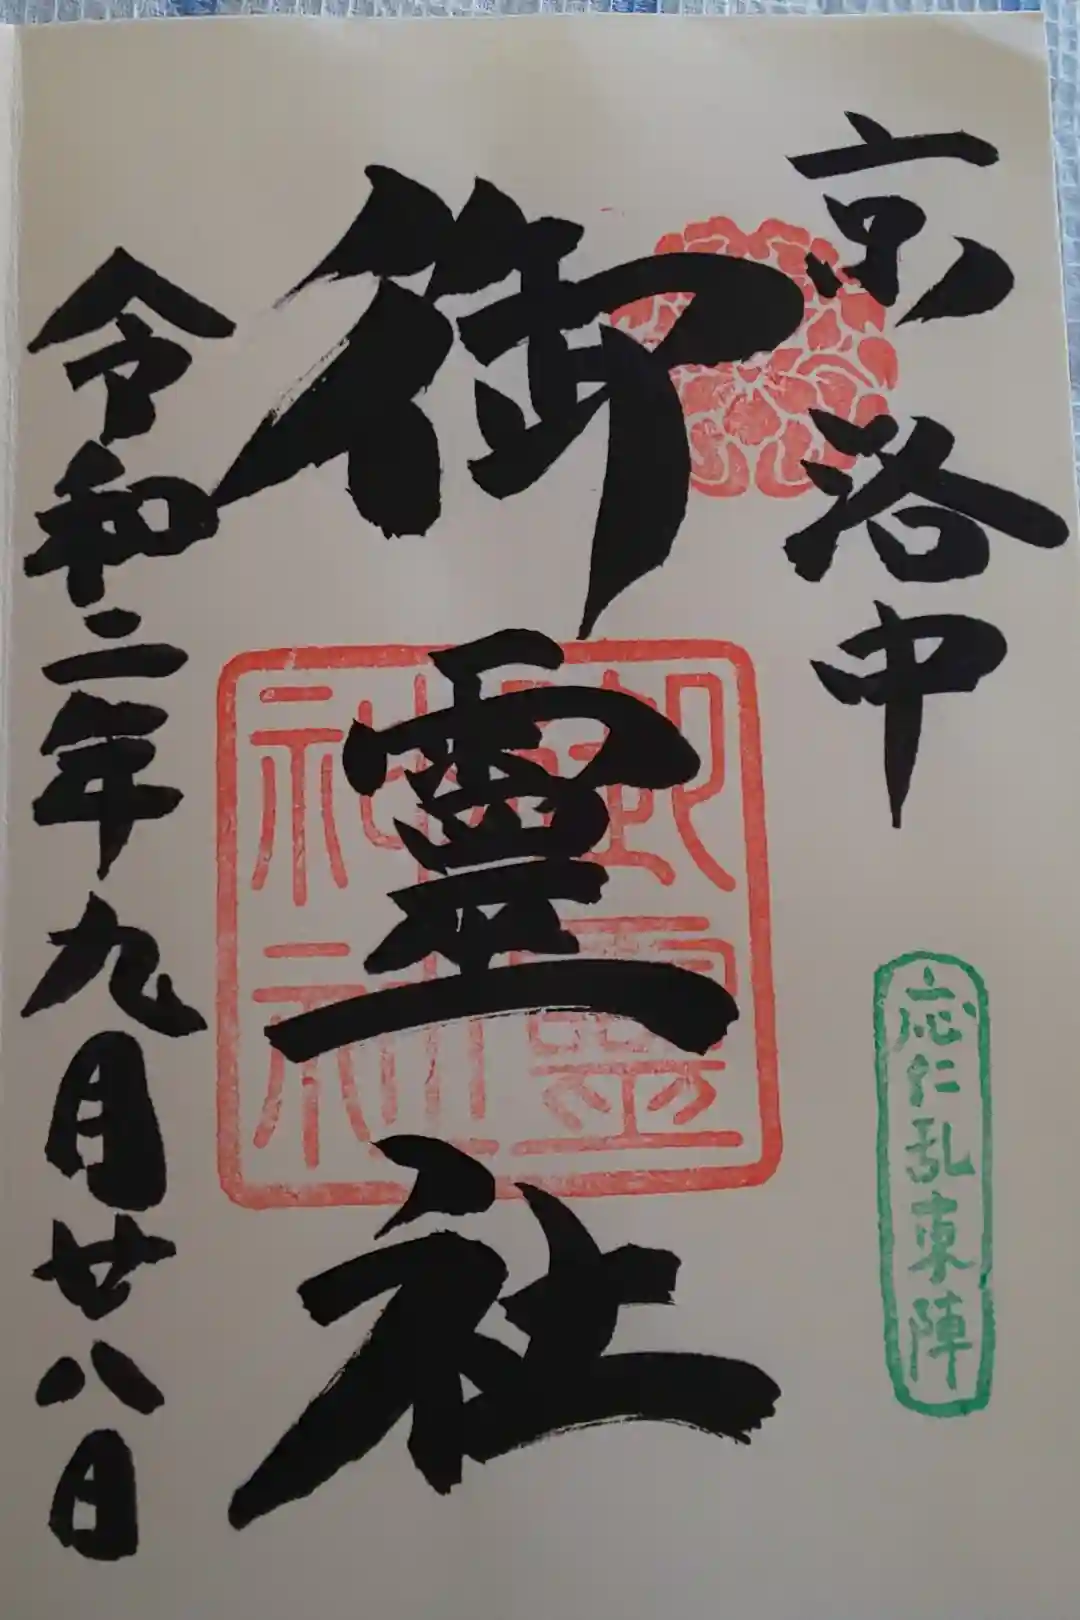 京洛中
応仁乱東陣
御霊社
御霊
神社
令和二年九月廿八日